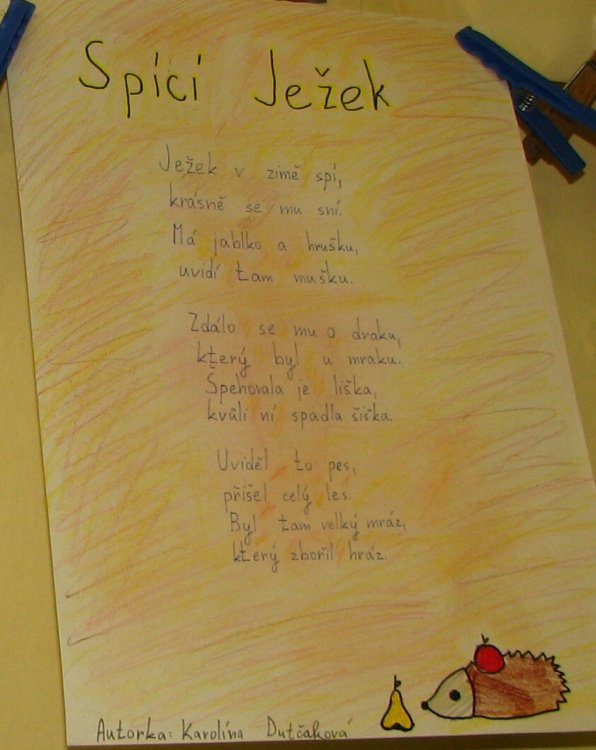 Spící Ježek
Ježek v zimě spí,
krásně se mu sní.
Má jablko a hrušku,
uvidí tam mušku.
Zdálo se mu o draku,
který byl u mraku.
Špehovala je liška,
kvůli ní spadla šiška.
Uviděl to pes,
přišel celý les.
Byl tam velký mráz,
který zbořil hráz.
Autorka: Karolína Dutčáková